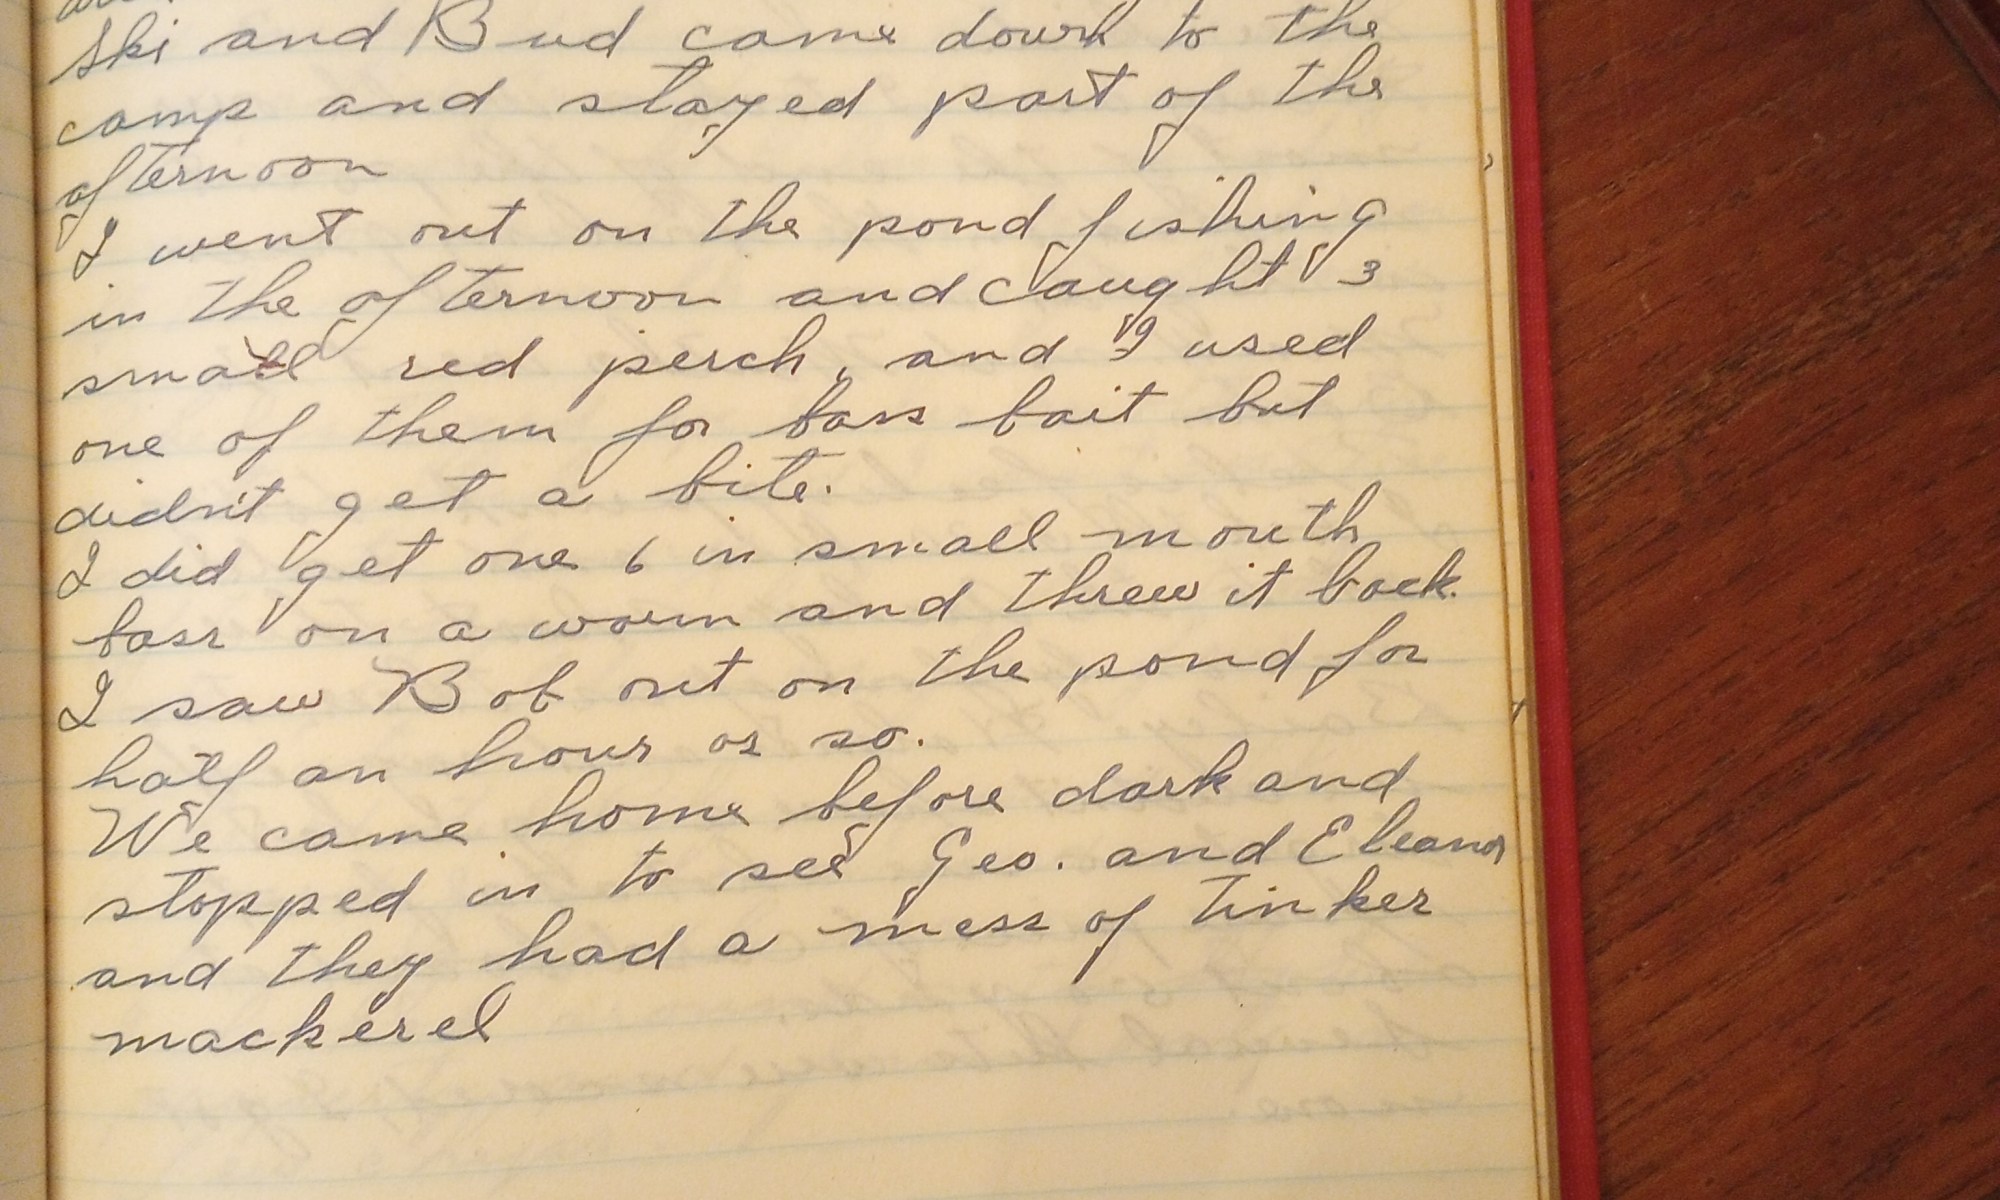 Ski and Bud came down to the
camp and stayed part of the
afternoon
I went out on the pond fishing
in the afternoon and caught 3
small red perch, and I used
one of them for bass bait but
didn't get a bite.
I did get one 6 in small mouth
bass on a worm and threw it back.
I saw Bob out on the pond for
half an hour or so.
We came home before dark and
stopped in to see Geo. and Eleanor
and they had a mess of tinker
mackerel